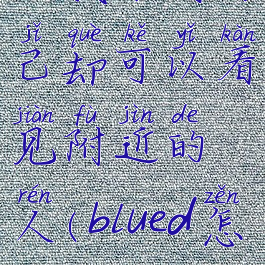 jǐ què kě yǐ kàn
己却可以看
jiàn fù jìn de
见附近的
rén zěn
人(blued怎